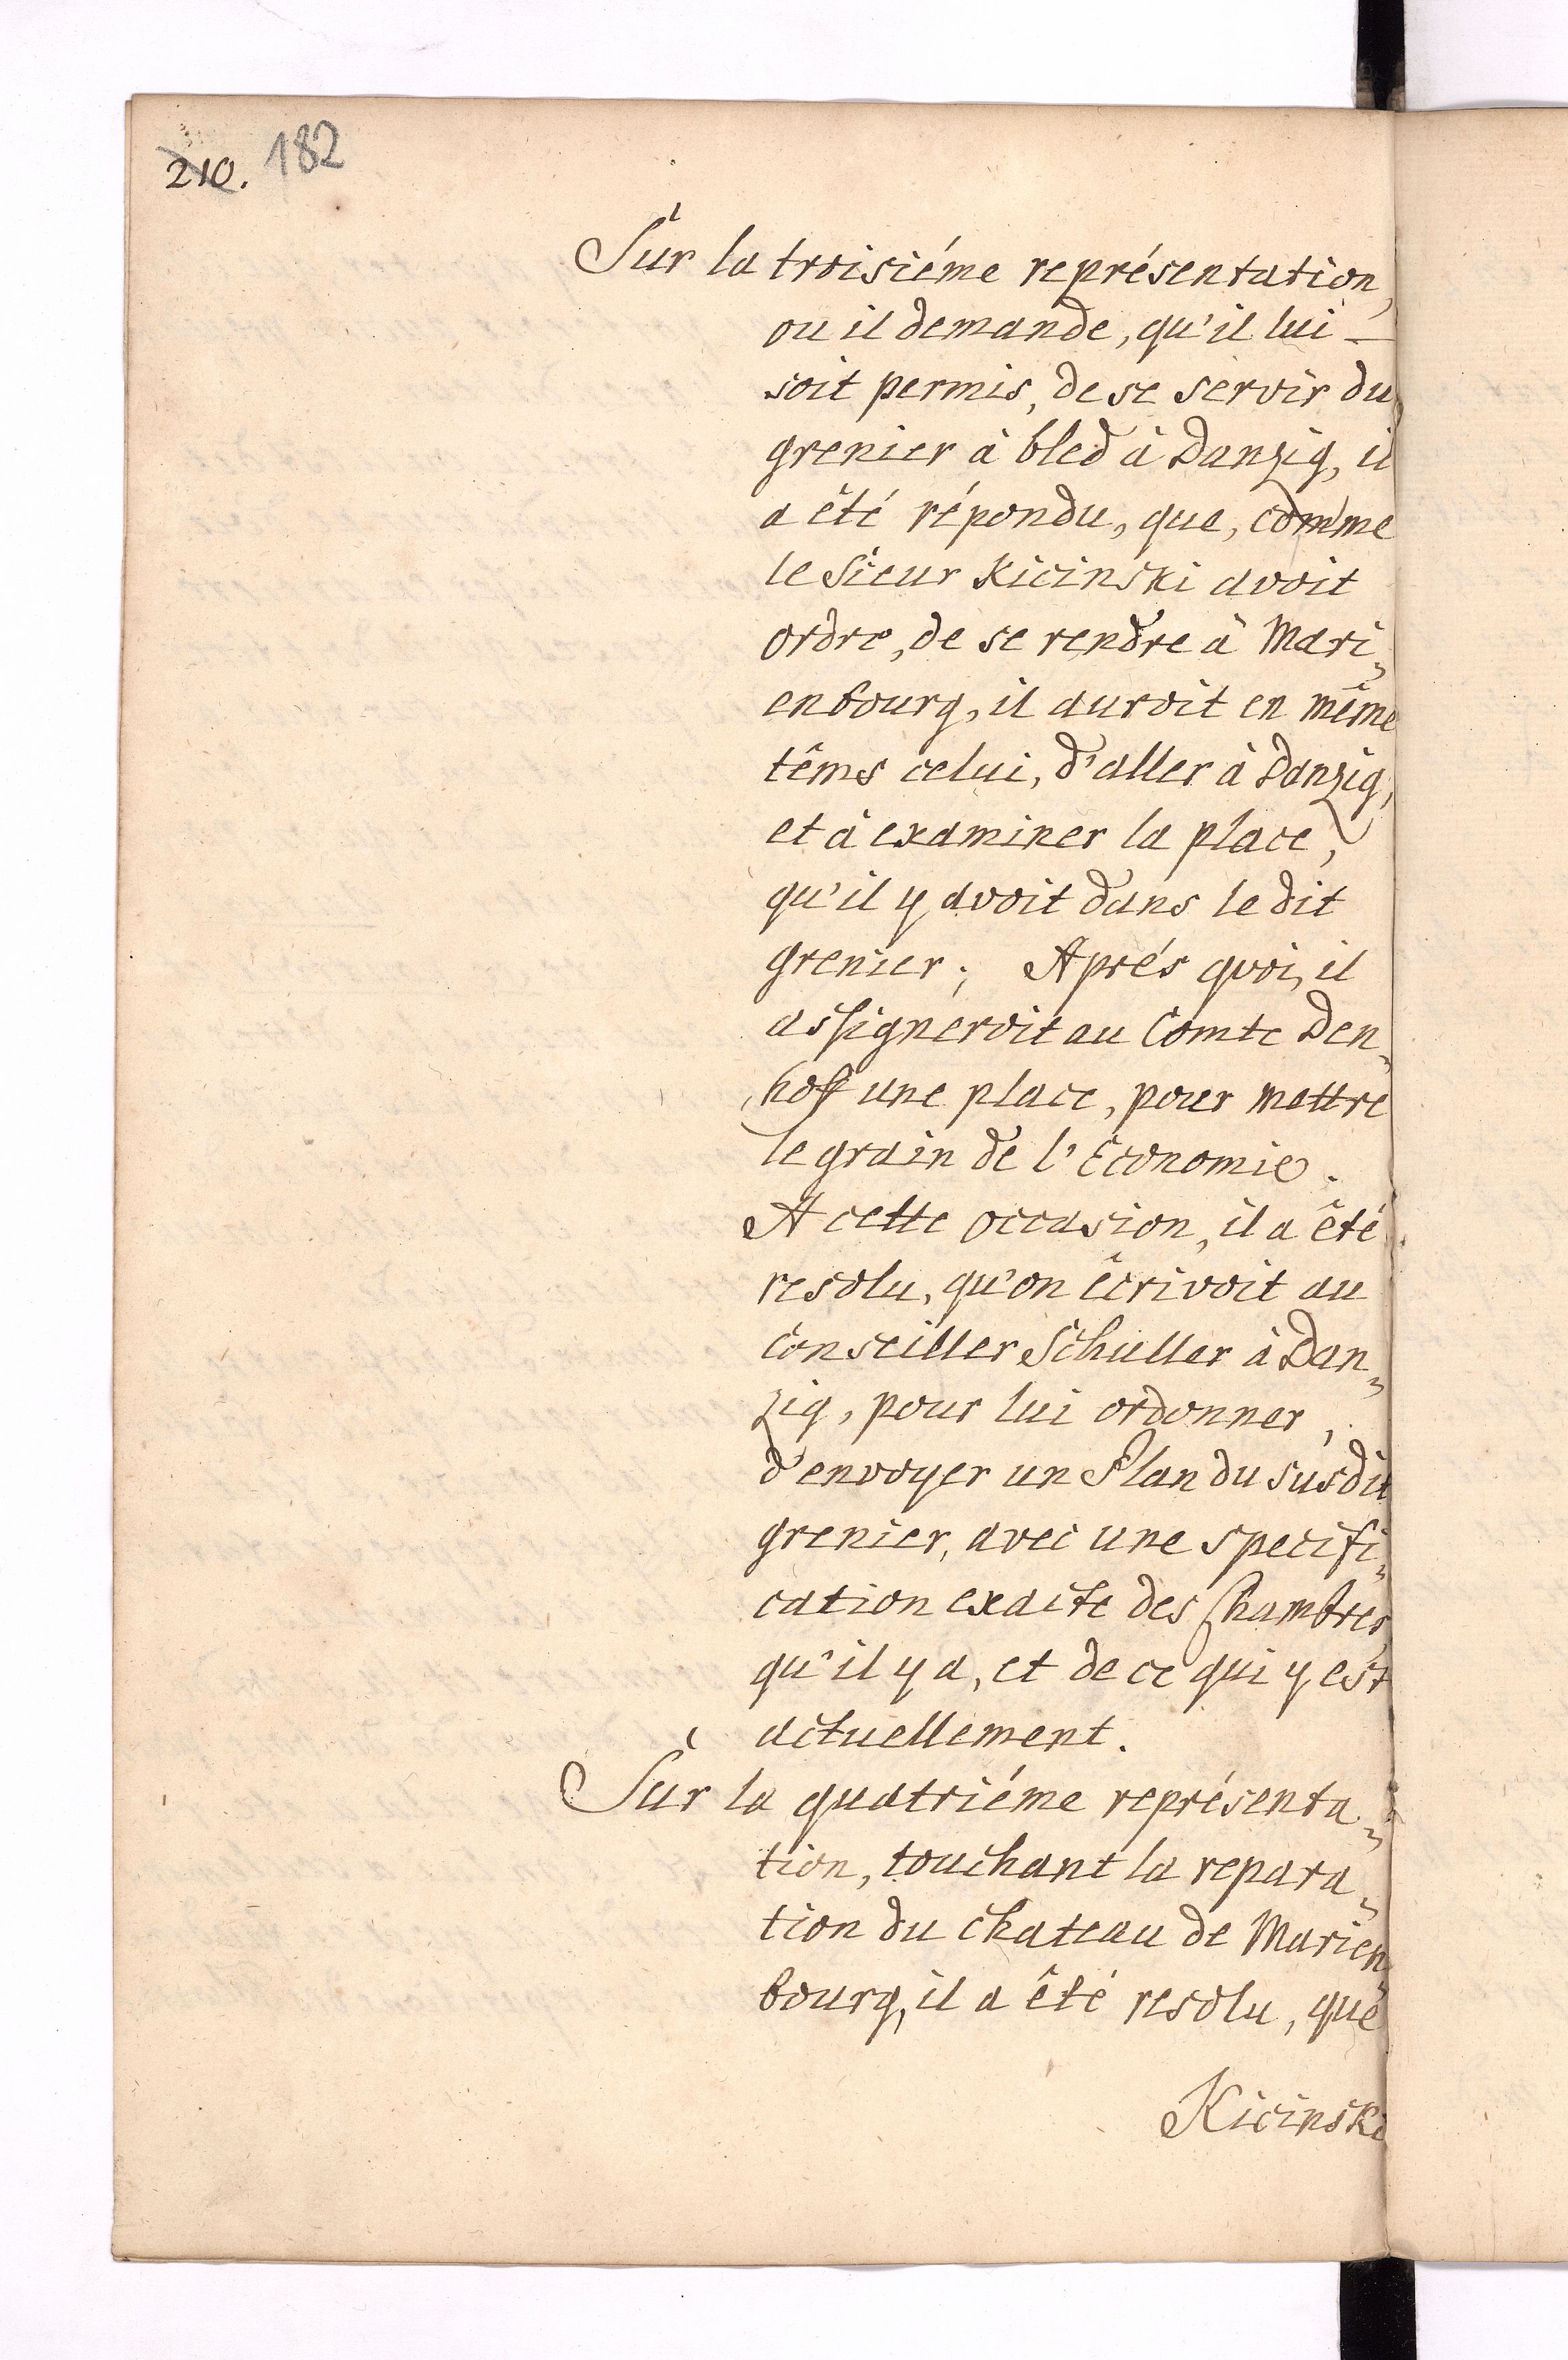 210. 182
Sur la troisiéme représentation,
ou il demande, qu'il lui
soit permis, de se servir du
grenier à bled à Danzig, il
a êté répondu, que, comme
le Sieur Kicinski avoit
ordre, de se rendre à Mari„
enbourg, il auroit en même
têms celui, d'aller à Danzig,
et à examiner la place,
qu'il y avoit dans le dit
grenier; Aprés quoi, il
assigneroit au Comte Den„
hoff une place, pour mettre
le grain de l'Economie.
A cette occasion, il a êté
resolu, qu'on êcrivoit au
Conseiller Schuller à Dan„
zig, pour lui ordonner,
d'envoyer un Plan du susdit
grenier, avec une specifi„
cation exacte des Chambres,
qu'il y a, et de ce qui y est
actuellement.
Sur la quatriéme représenta„
tion, touchant la repara„
tion du chateau de Marien„
bourg, il a êté resolu, que
Kicinski